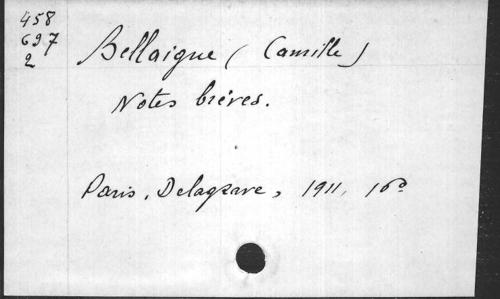 458
697
2
Bellaigue (Camille)
Notes brèves.
Paris, Delagrave, 1911, 16°